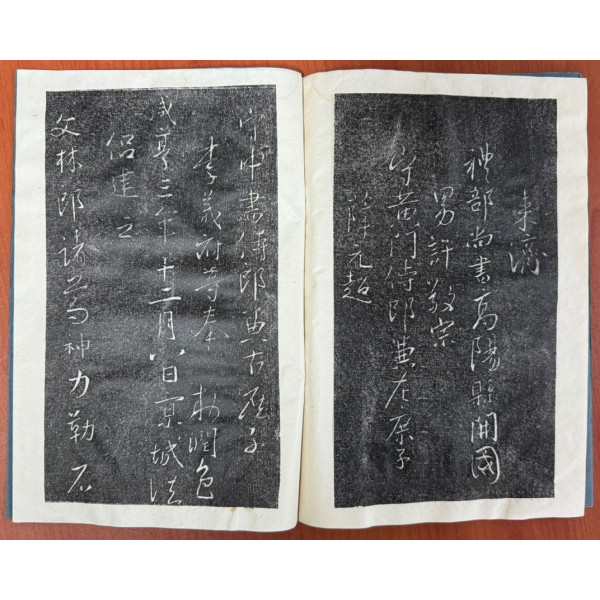 來濟
禮部尚書高陽縣開國
男許敬宗
守黃門侍郎兼左庶子
薛元超
守中書侍郎兼右庶子
李義府等奉 敕潤色
咸亨三年十二月八日京城法
侶建立
文林郎諸葛神力勒石